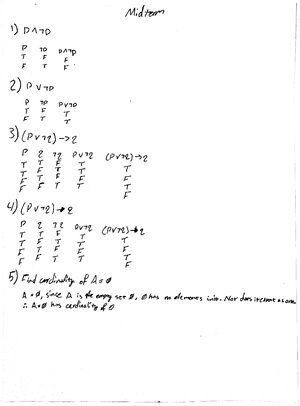 Midterm
1) P∧¬P
P ¬P P∧¬P
T F F
F T F
2) P∨¬P
P ¬P P∨¬P
T F T
F T T
3) (P∨¬q)→q
P q ¬q P∨¬q (P∨¬q)→q
T T F T T
T F T T F
F T F F T
F F T T F
4) (P∨¬q)→q
P q ¬q P∨¬q (P∨¬q)→q
T T F T T
T F T T F
F T F F T
F F T T F
5) Find cardinality of A=∅
A=∅, since A is the empty set ∅, ∅ has no elements in it. Nor does it count as one
∴ A=∅ has cardinality of 0